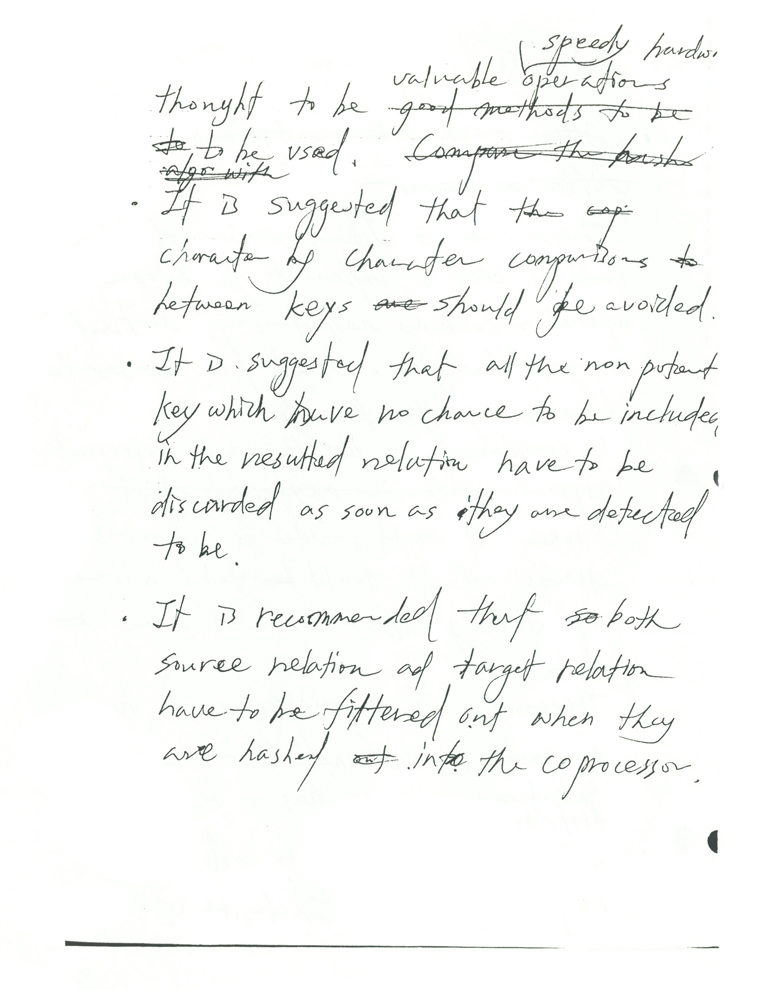 speedy hardw
valuable operations
thought to be good methods to be
to to be used. Compare the hash
algo with
· It is suggested that the
character by character comparisons to
between keys are should be avoided.
· It is suggested that all the non potent
key which have no chance to be included
in the resulted relation have to be
discarded as soon as they are detected
to be.
· It is recommended that so both
source relation ad target relation
have to be filtered out when they
are hashed out into the coprocessor.